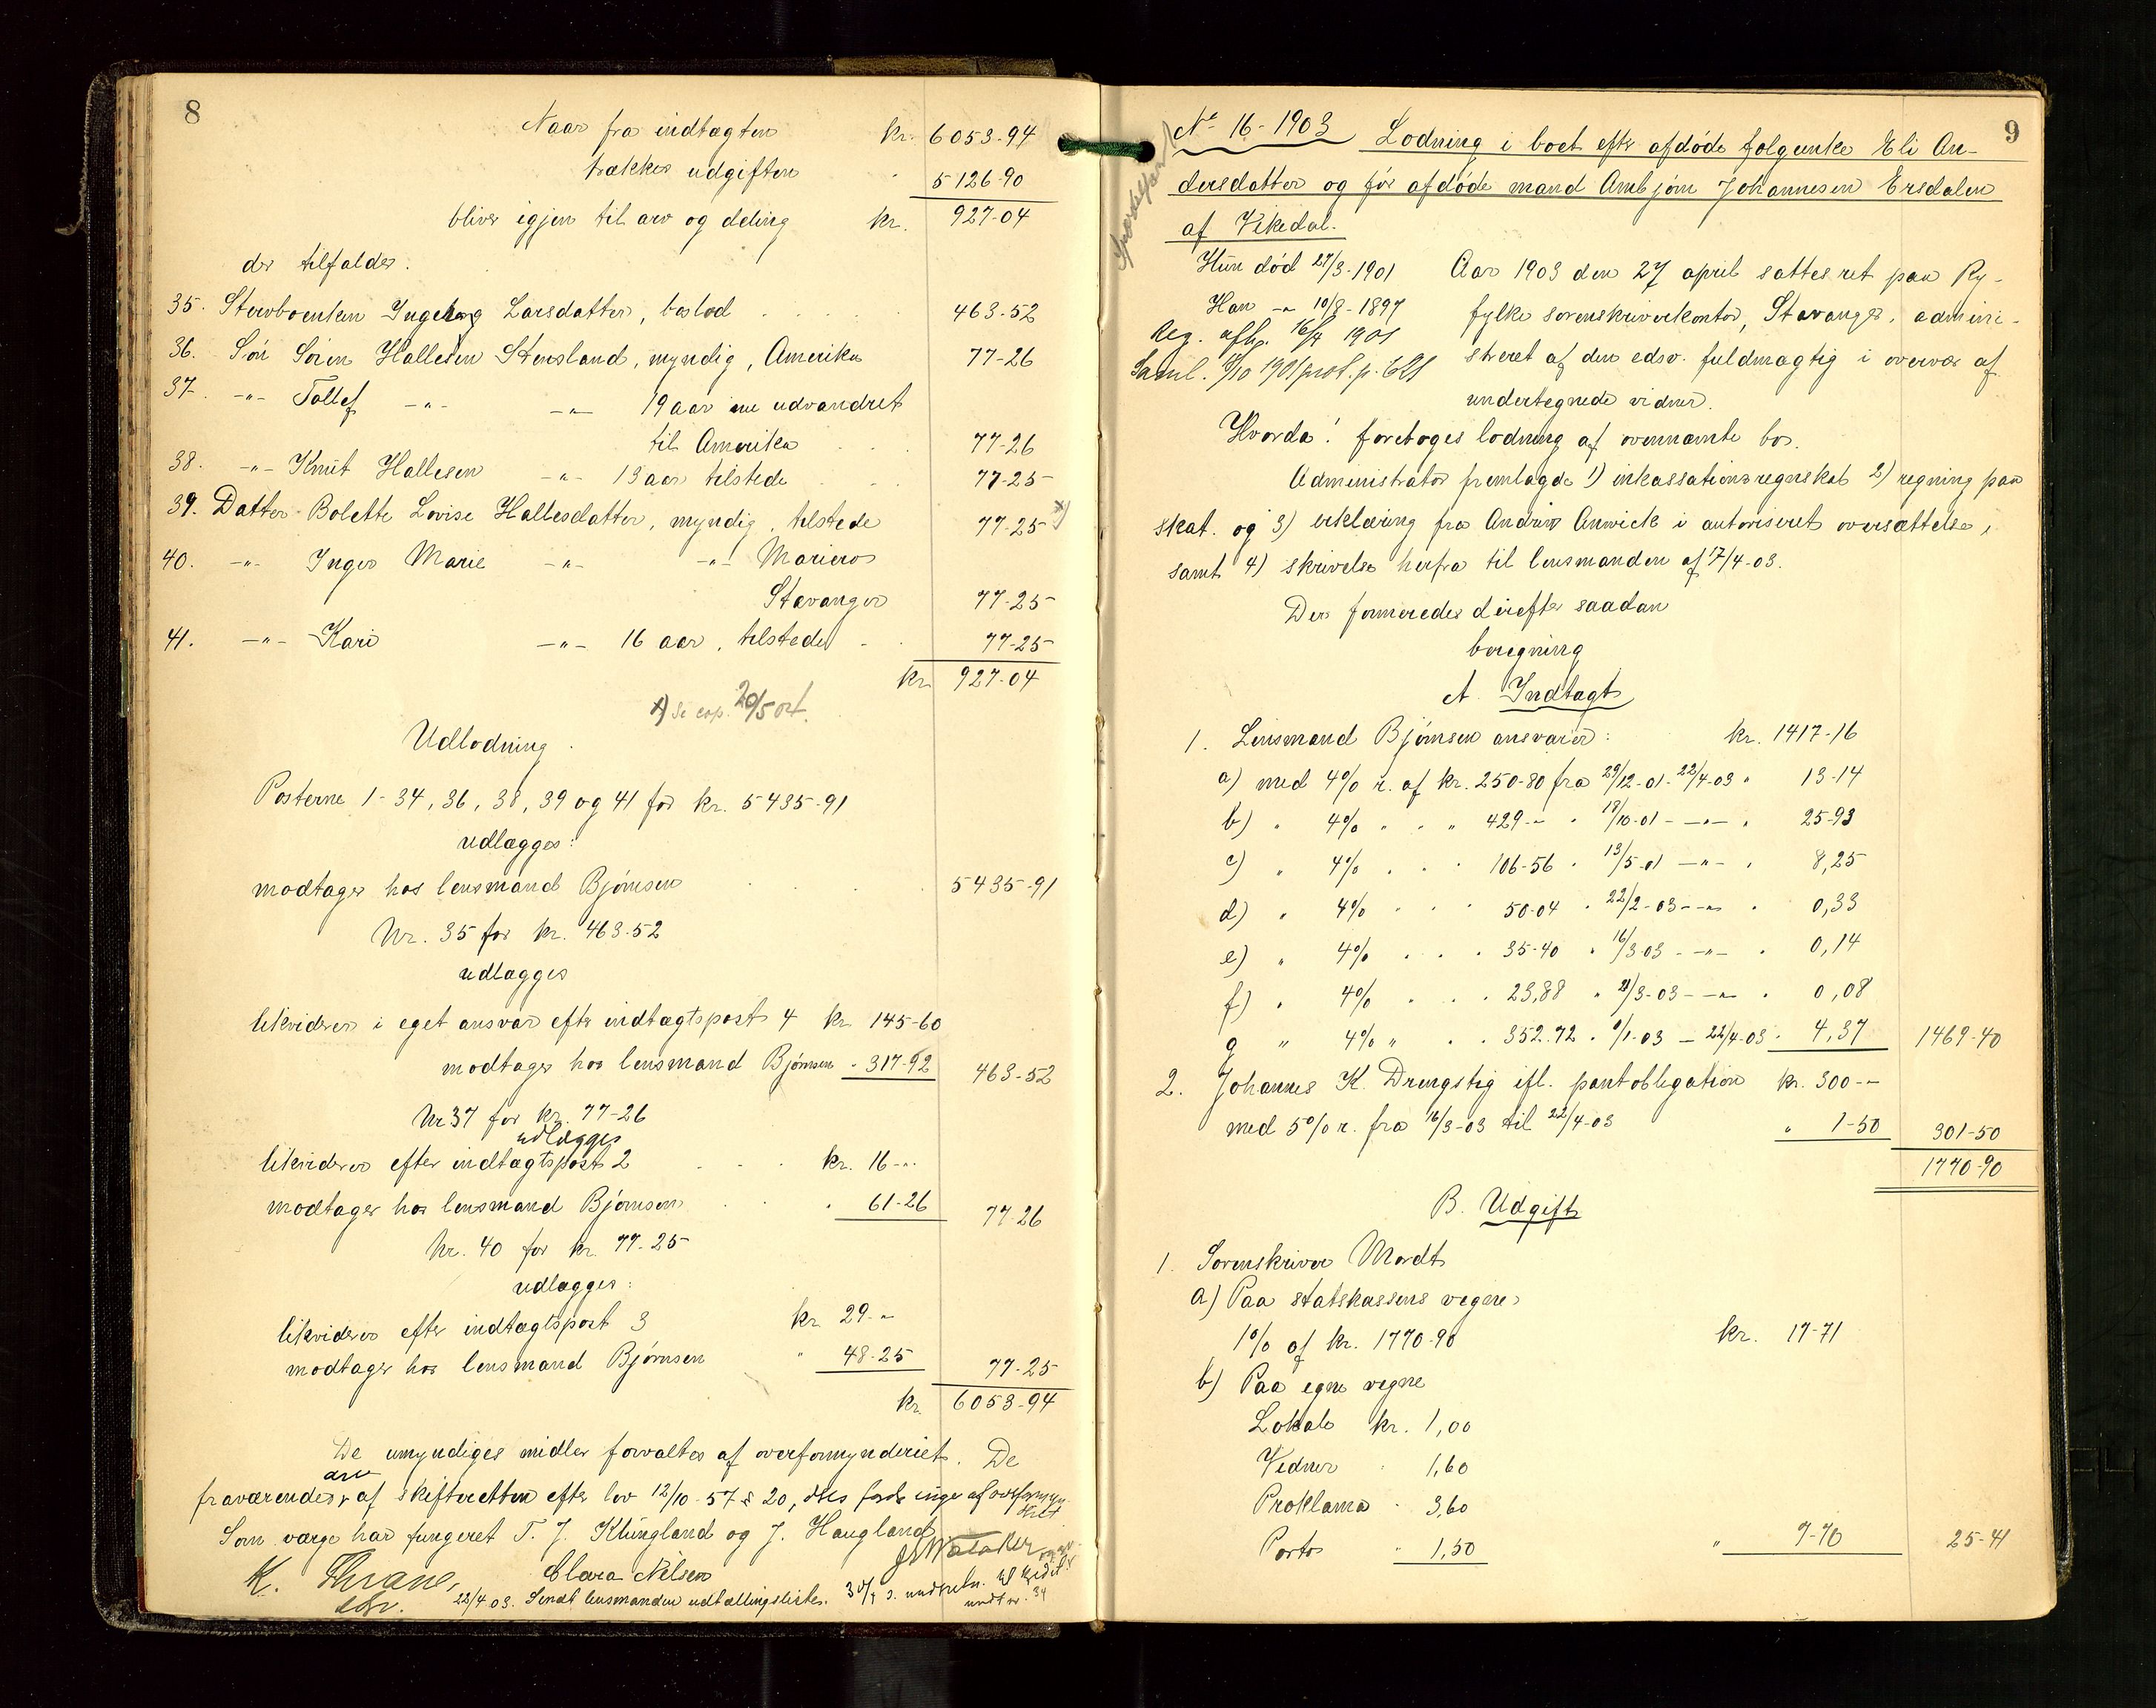 8
Naar fra indtægten kr. 6053-94
trækkes udgiften " 5126-90
bliver igjen til arv og deling kr. 927-04
der tilfalder.
35. Stervboenken Ingeborg Larsdatter, boslod 463-52
36. Søn Sören Hallesen Stensland, myndig, Amerika 77-26
37. -"- Tollef -"- -"- 19 aar nu udvandret
til Amerika 77-26
38. -"- Knut Hallesen -"- 13 aar tilstede 77-25
39. Datter Bolette Lovise Hallesdatter, myndig, tilstede 77-25 x)
40. -"- Inger Marie -"- -"- Mariero
Stavanger 77-25
41. -"- Kari -"- 16 aar, tilstede 77-25
kr. 927-04
x) Se cop. 20/5 04.
Udlodning.
Posterne 1-34, 36, 38, 39 og 41 for kr. 5435-91
udlægges:
modtager hos lensmand Bjørnsen 5435-91
Nr. 35 for kr. 463-52
udlægges
likviderer i eget ansvar efter indtægtspost 4 kr. 145-60
modtager hos lensmand Bjørnsen " 317-92 463-52
Nr 37 for kr. 77-26
udlægges
likviderer efter indtægtspost 2 kr. 16-"
modtager hos lensmand Bjørnsen " 61-26 77-26
Nr. 40 for kr. 77-25
udlægges:
likviderer efter indtægtspost 3 kr. 29-"
modtager hos lensmand Bjørnsen " 48-25 77-25
kr. 6053-94
De umyndiges midler forvaltes af overformynderiet. De
fraværendes arv af skifteretten efter lov 12/10-57 § 20, dets
Som værge har fungeret T. J. Klungland og J. Haugland
K. Thrane, Clara Nilsen
22/4 03. Sendt lensmanden udtællingslister.
9
No 16-1903 Lodning i boet eftr afdøde følgeenke Eli An-
dersdatter og før afdøde mand Ambjørn Johannesen Ersdalen
af Vikedal.
Hun död 27/3-1901 Aar 1903 den 27 april sattes ret paa Ry-
Han -"- 10/8-1897 fylke sorenskriverkontor, Stavanger, admini-
Reg. afh. 16/4 1901 streret af den edsv. fuldmægtig i overvær af
Saml. 9/10 1901 prot. p. 621 undertegnede vidner.
Hvorda! foretoges lodning af ovennævnte bo.
Administrator fremlagde 1) inkassationsregnskab 2) regning paa
skat. og 3) erklæring fra Andrew Anwick i autoriseret oversættelse,
samt 4) skrivelse herfra til lensmanden af 17/4-03.
Der formeredes derefter saadan
beregning
A. Indtægt
1. Lensmand Bjørnsen ansvarer: kr. 1417-16
a) med 4% r. af kr. 250-80 fra 29/12-01-22/4-03 " 13-14
b) " 4% " " " 429-" " 18/10-01 -"- " 25-93
c) " 4% " " " 106-56 " 13/5-01 -"- " 8,25
d) " 4% " " " 50-04 " 22/2-03 -"- " 0,33
e) " 4% " " " 35-40 " 16/3-03 -"- " 0,14
f) " 4% " " " 23,88 " 21/3-03 -"- " 0,08
g " 4% " " " 352.72 " 1/1-03 - 22/4-03 " 4,37 1469-40
2. Johannes K. Drengstig ifl. pantobligation kr. 300-"
med 5% r. fra 16/3-03 til 22/4-03 " 1-50 301-50
1770-90
B. Udgift
1. Sorenskriver Mordt
a) Paa statskassens vegne
1% af kr. 1770-90 kr. 17-71
b) Paa egne vegne
Lokale kr. 1,00
Vidner " 1,60
Proklama " 3,60
Porto " 1,50 " 7-70 25-41